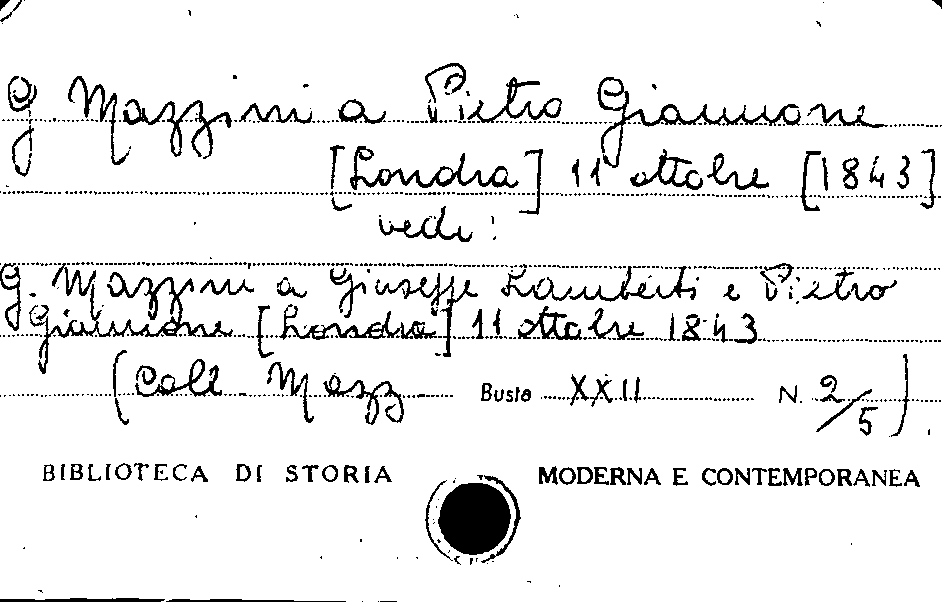 G. Mazzini a Pietro Giannone
[Londra] 11 ottobre [1843]
vedi:
G. Mazzini a Giuseppe Lamberti e Pietro
Giannone [Londra] 11 ottobre 1843
(Coll. Mazz. Busta XXII N. 2/5).
BIBLIOTECA DI STORIA MODERNA E CONTEMPORANEA